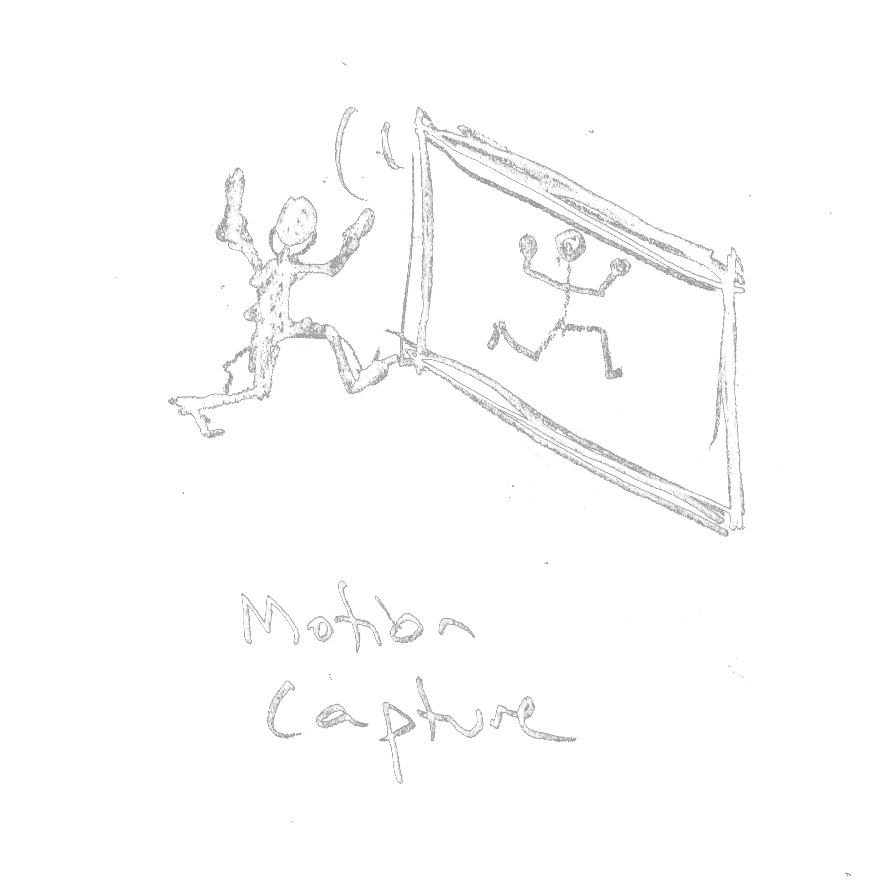 Motion
Capture